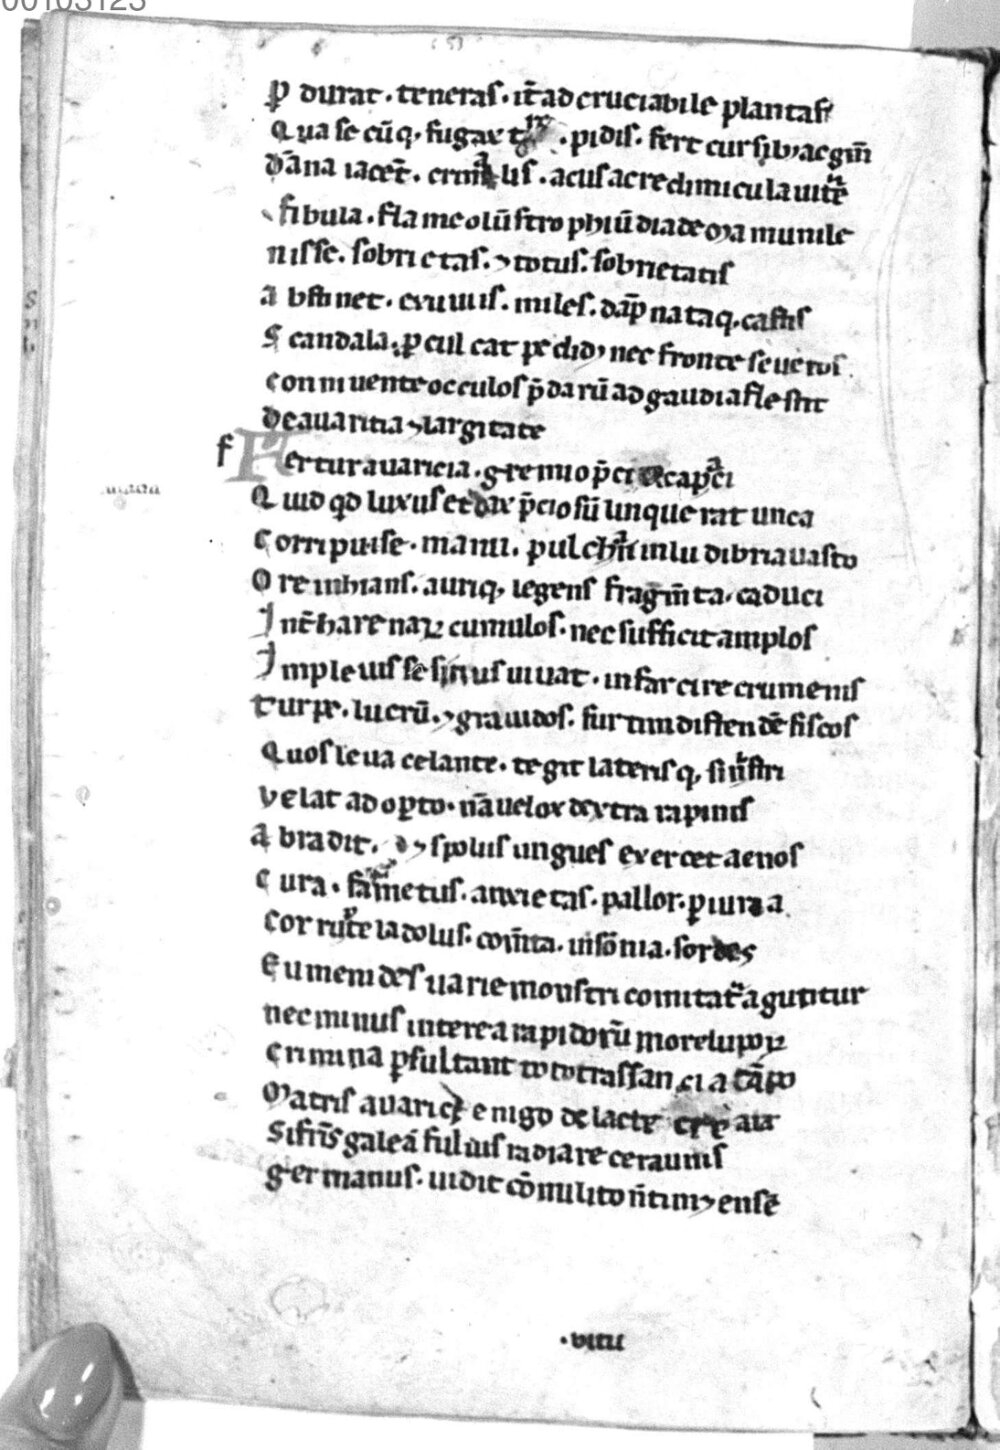 00103123
ꝑ durat · teneras · it̄ ad cruciabile plantaſ
Qua ſe cūq; fugax · pidiſ · fert curſib; ac gm̄
dāna iacet̄ · crinaliſ · acuſ ac redimicula uit̄e
fibula · flameolū ſtrophiū diadema munile
niſſe · ſobrietaſ · ⁊ totuſ · ſobrietatiſ
abſtinet · exuuiiſ · mileſ · dāpnataq; caſtiſ
Scandala · ꝓculcat pedib; nec fronte ſeueroſ
conniuente occuloſ p̄darū ad gaudia fleſtit
de auaritia ⁊ largitate
f
Fertur auaricia · gremio p̄ci capaci
Quid qd̄ luxuſ edax p̄cioſū linquerat unca
Corripuiſe · manu · pulchra in ludibria uaſto
Ore inhianſ · auriq; legenſ fragm̄ta · caduci
Int̄ harenaꝝ cumuloſ · nec ſufficit amploſ
Impleuiſſe ſinuſ iuuat · infarcire crumeniſ
turpe · lucrū · ⁊ grauidoſ · furtim diſtendē fiſcoſ
Quoſ leua celante · tegit lateriſq; ſiniſtri
velat adopto · nā uelox dextra rapiniſ
abradit · ſpoliiſ ungueſ exercet aenoſ
Cura · fameſ metuſ · anxietaſ · pallor · ꝑiuria
Corruptela doluſ · com̄ta · inſōnia · ſordes
Eumenideſ uarie monſtri comitat̄ agutitur
nec minuſ interea rapidorū more lupoꝝ
Crimina ꝑſultant toto craſſancia cāpo
Matriſ auaricie nigo de lacte creata
Si fr̄iſ galeā fuluiſ radiare cerauniſ
germanuſ · uidit cōmilito n̄ tim; enſē
· viiii